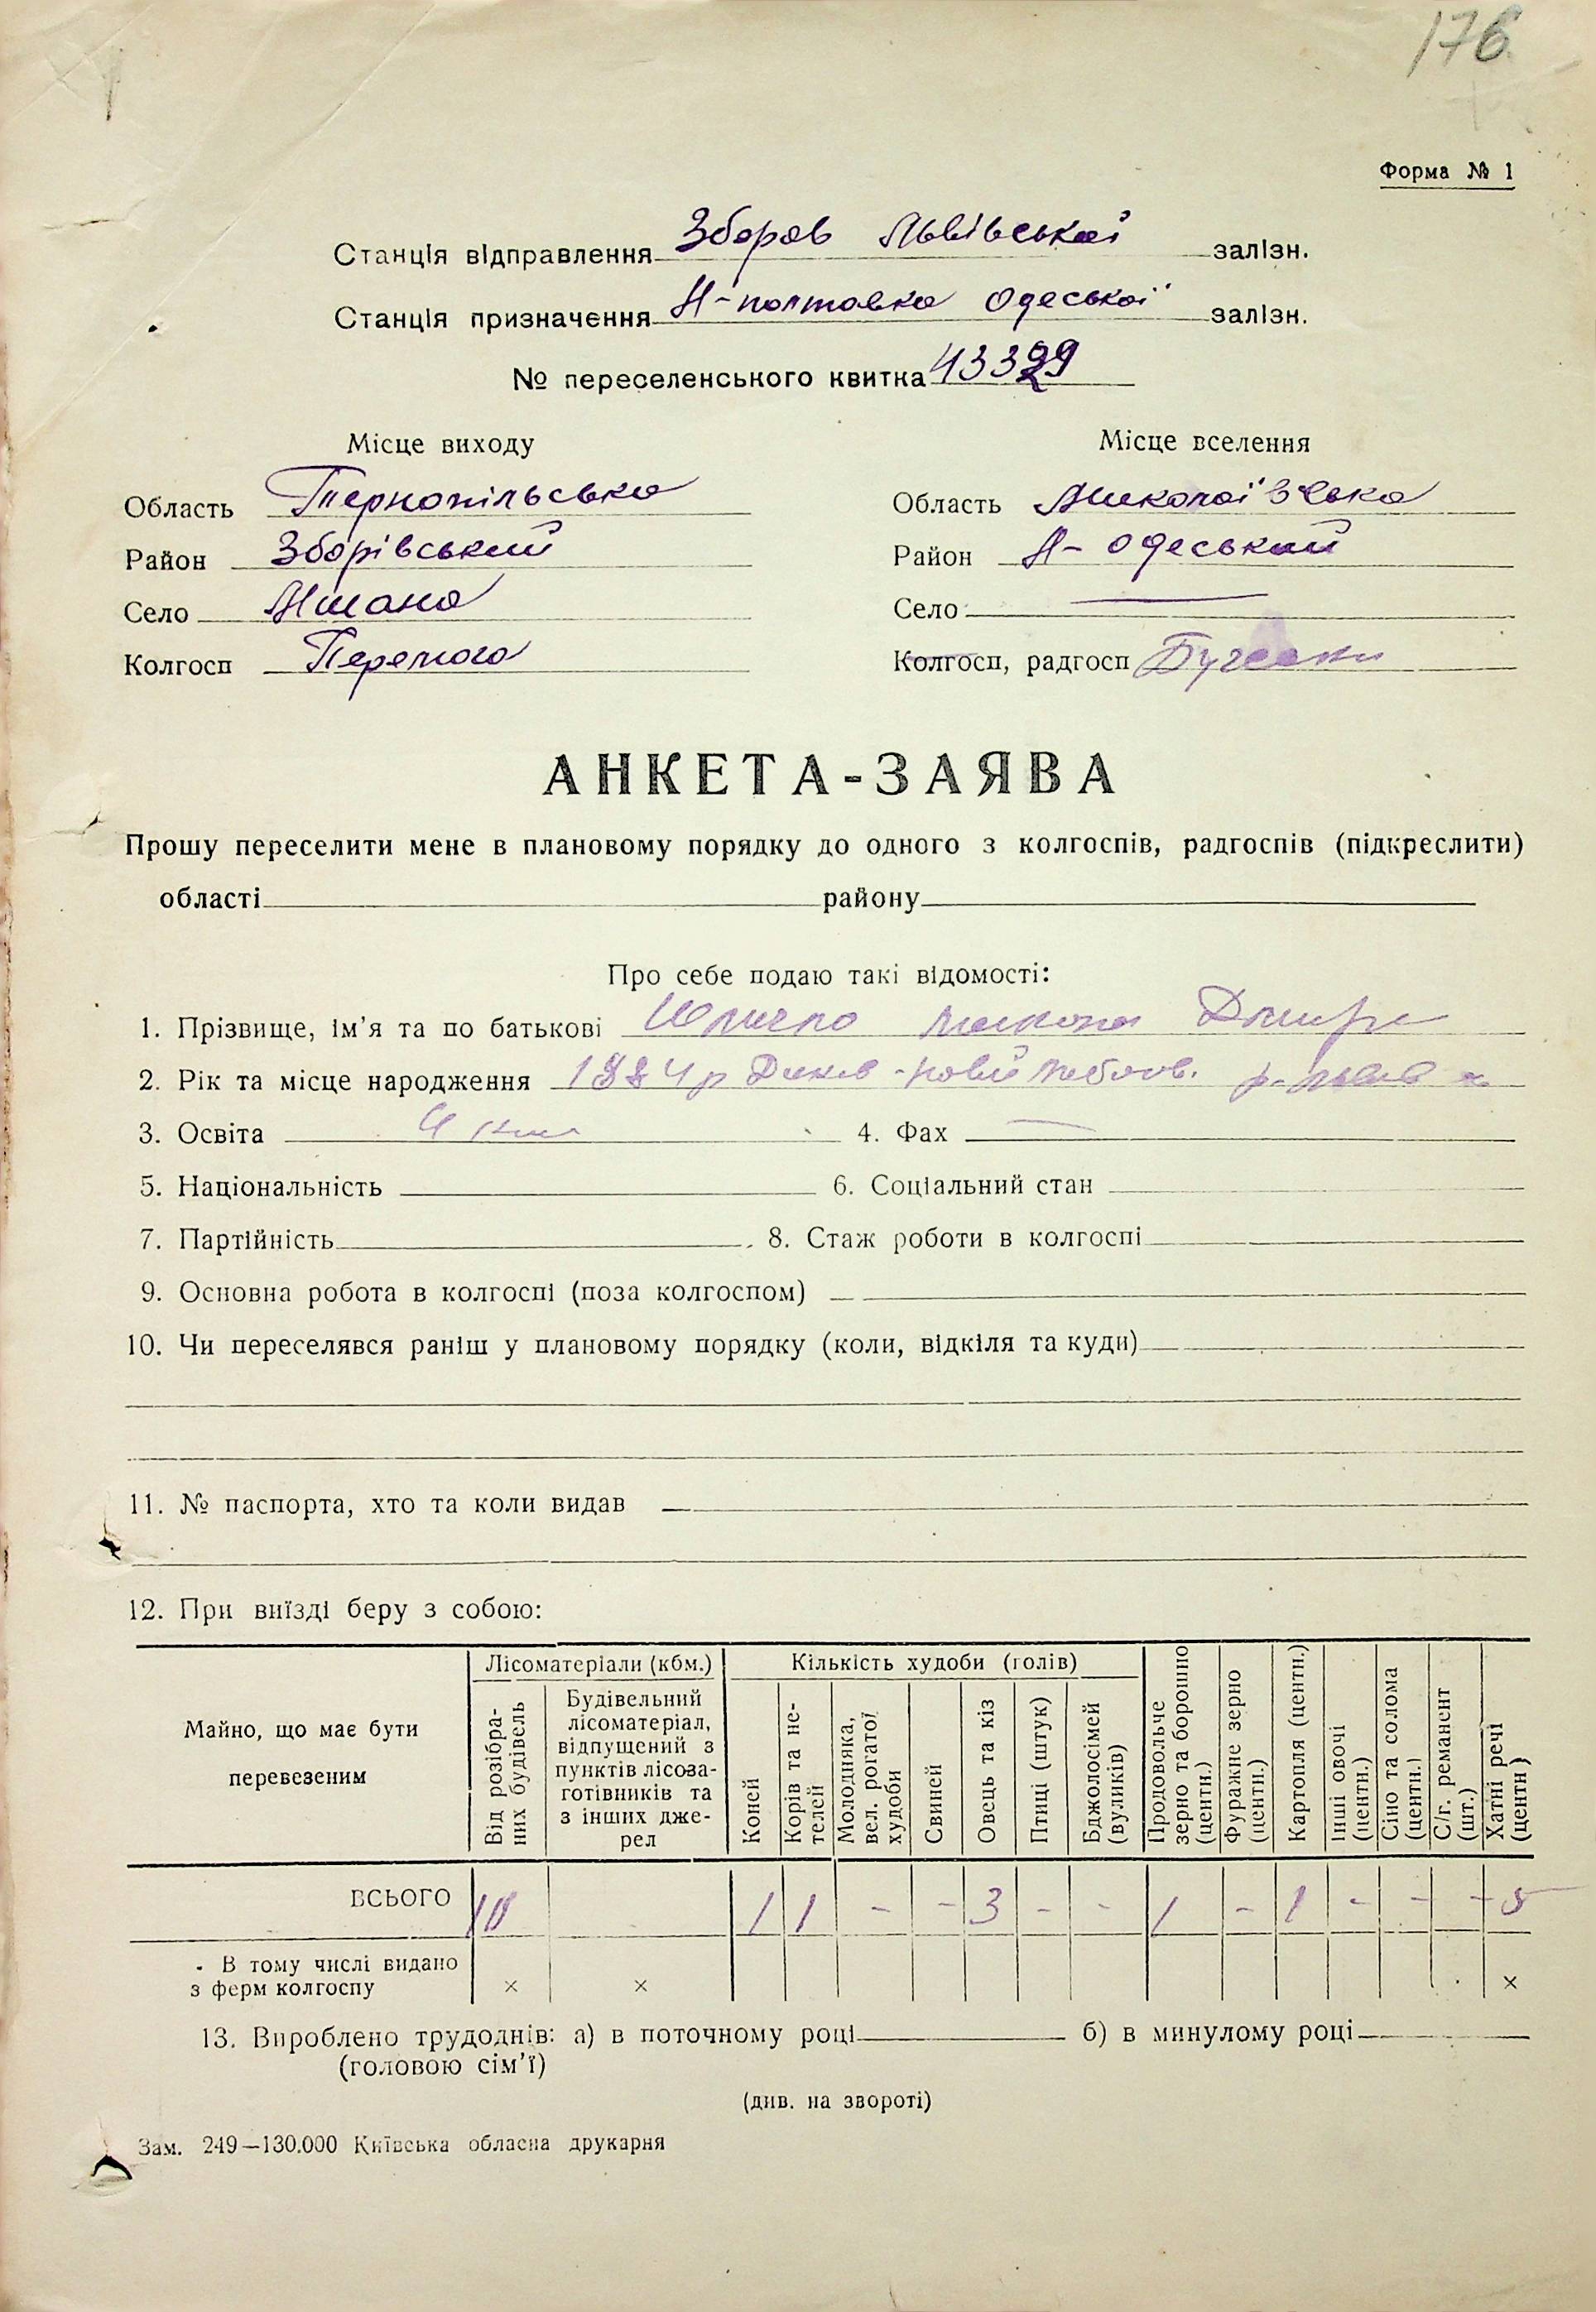 176
Форма № 1
Станція відправлення Зборов Львівської залізн.
Станція призначення Н-полтавка Одеської залізн.
№ переселенського квитка 43329
Місце виходу Місце вселення
Область Тернопільська Область Миколаївська
Район Зборівський Район Н-Одеський
Село Мшана Село —
Колгосп Перемога Колгосп, радгосп
АНКЕТА-ЗАЯВА
Прошу переселити мене в плановому порядку до одного з колгоспів, радгоспів (підкреслити)
області району
Про себе подаю такі відомості:
1. Прізвище, ім'я та по батькові
2. Рік та місце народження 1884 р
3. Освіта 4 4. Фах —
5. Національність 6. Соціальний стан
7. Партійність 8. Стаж роботи в колгоспі
9. Основна робота в колгоспі (поза колгоспом)
10. Чи переселявся раніш у плановому порядку (коли, відкіля та куди)
11. № паспорта, хто та коли видав
12. При виїзді беру з собою:
Майно, що має бути перевезеним
Лісоматеріали (кбм.)
Від розібра-
них будівель
Будівельний
лісоматеріал,
відпущений з
пунктів лісоза-
готівників та
з інших дже-
рел
Кількість худоби (голів)
Коней
Корів та не-
телей
Молодняка,
вел. рогатої
худоби
Свиней
Овець та кіз
Птиці (штук)
Бджолосімей
(вуликів)
Продовольче
зерно та борошно
(центн.)
Фуражне зерно
(центн.)
Картопля (центн.)
Інші овочі
(центн.)
Сіно та солома
(центн.)
С/г. реманент
(шт.)
Хатні речі
(центн)
ВСЬОГО 10 1 1 - - 3 - - 1 - 1 - - - 5
В тому числі видано
з ферм колгоспу × × ×
13. Вироблено трудоднів: а) в поточному році б) в минулому році
(головою сім'ї)
(див. на звороті)
Зам. 249—130.000 Київська обласна друкарня